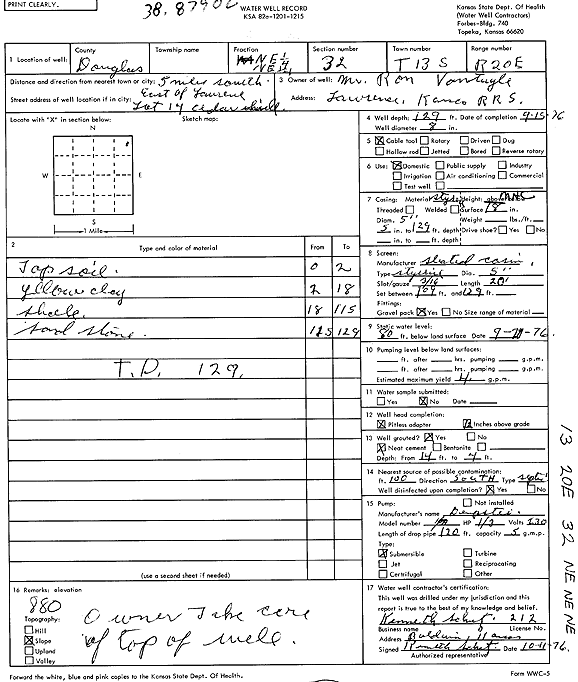 PRINT CLEARLY.
WATER WELL RECORD
KSA 82a-1201-1215
Kansas State Dept. Of Health
(Water Well Contractors)
Forbes-Bldg. 740
Topeka, Kansas 66620
1 Location of well:
County
Douglas
Township name
Fraction
NE 1/4
NE 1/4
Section number
32
Town number
T 13 S
Range number
R 20 E
Distance and direction from nearest town or city: 5 miles south
East of Lawrence
Street address of well location if in city: Lot 14
3 Owner of well: Mr. Ron
Address: Lawrence, Kansas R R 5.
Locate with "X" in section below:
Sketch map:
N
W
E
S
1 Mile
4 Well depth: 129 ft. Date of completion 9-15-76
Well diameter 8 in.
5 Cable tool Rotary Driven Dug
Hollow rod Jetted Bored Reverse rotary
6 Use: Domestic Public supply Industry
Irrigation Air conditioning Commercial
Test well
7 Casing: Material Height: above
Threaded Welded Surface 18 in.
Diam. 5" Weight lbs./ft.
5 in. to 129 ft. depth Drive shoe? Yes No
in. to ft. depth
8 Screen:
Manufacturer slotted casing
Type styrene Dia. 5"
Slot/gauze 3/16 Length 20'
Set between 109 ft. and 129 ft.
Fittings:
Gravel pack Yes No Size range of material
9 Static water level:
80 ft. below land surface Date 76
10 Pumping level below land surfaces:
ft. after hrs. pumping g.p.m.
ft. after hrs. pumping g.p.m.
Estimated maximum yield 4 g.p.m.
11 Water sample submitted:
Yes No Date
12 Well head completion:
Pitless adapter 12 Inches above grade
13 Well grouted? Yes No
Neat cement Bentonite
Depth: From 14 ft. to 4 ft.
14 Nearest source of possible contamination:
ft. 100 Direction South Type septic
Well disinfected upon completion? Yes No
15 Pump: Not installed
Manufacturer's name Dempster
Model number HP 1/2 Volts 230
Length of drop pipe 120 ft. capacity 5 g.m.p.
Type:
Submersible Turbine
Jet Reciprocating
Centrifugal Other
2 Type and color of material From To
Top soil. 0 2
yellow clay 2 18
shale. 18 115
sand stone. 115 129
T.D. 129.
(use a second sheet if needed)
16 Remarks: elevation
880
Topography:
Hill
Slope
Upland
Valley
Owner Take care
of top of well.
17 Water well contractor's certification:
This well was drilled under my jurisdiction and this
report is true to the best of my knowledge and belief.
Kenneth 212
Business name License No.
Address Baldwin, Kansas
Signed Kenneth Date 10-11-76.
Authorized representative
Forward the white, blue and pink copies to the Kansas State Dept. Of Health.
Form WWC-5
13 20E 32 NE NE NE